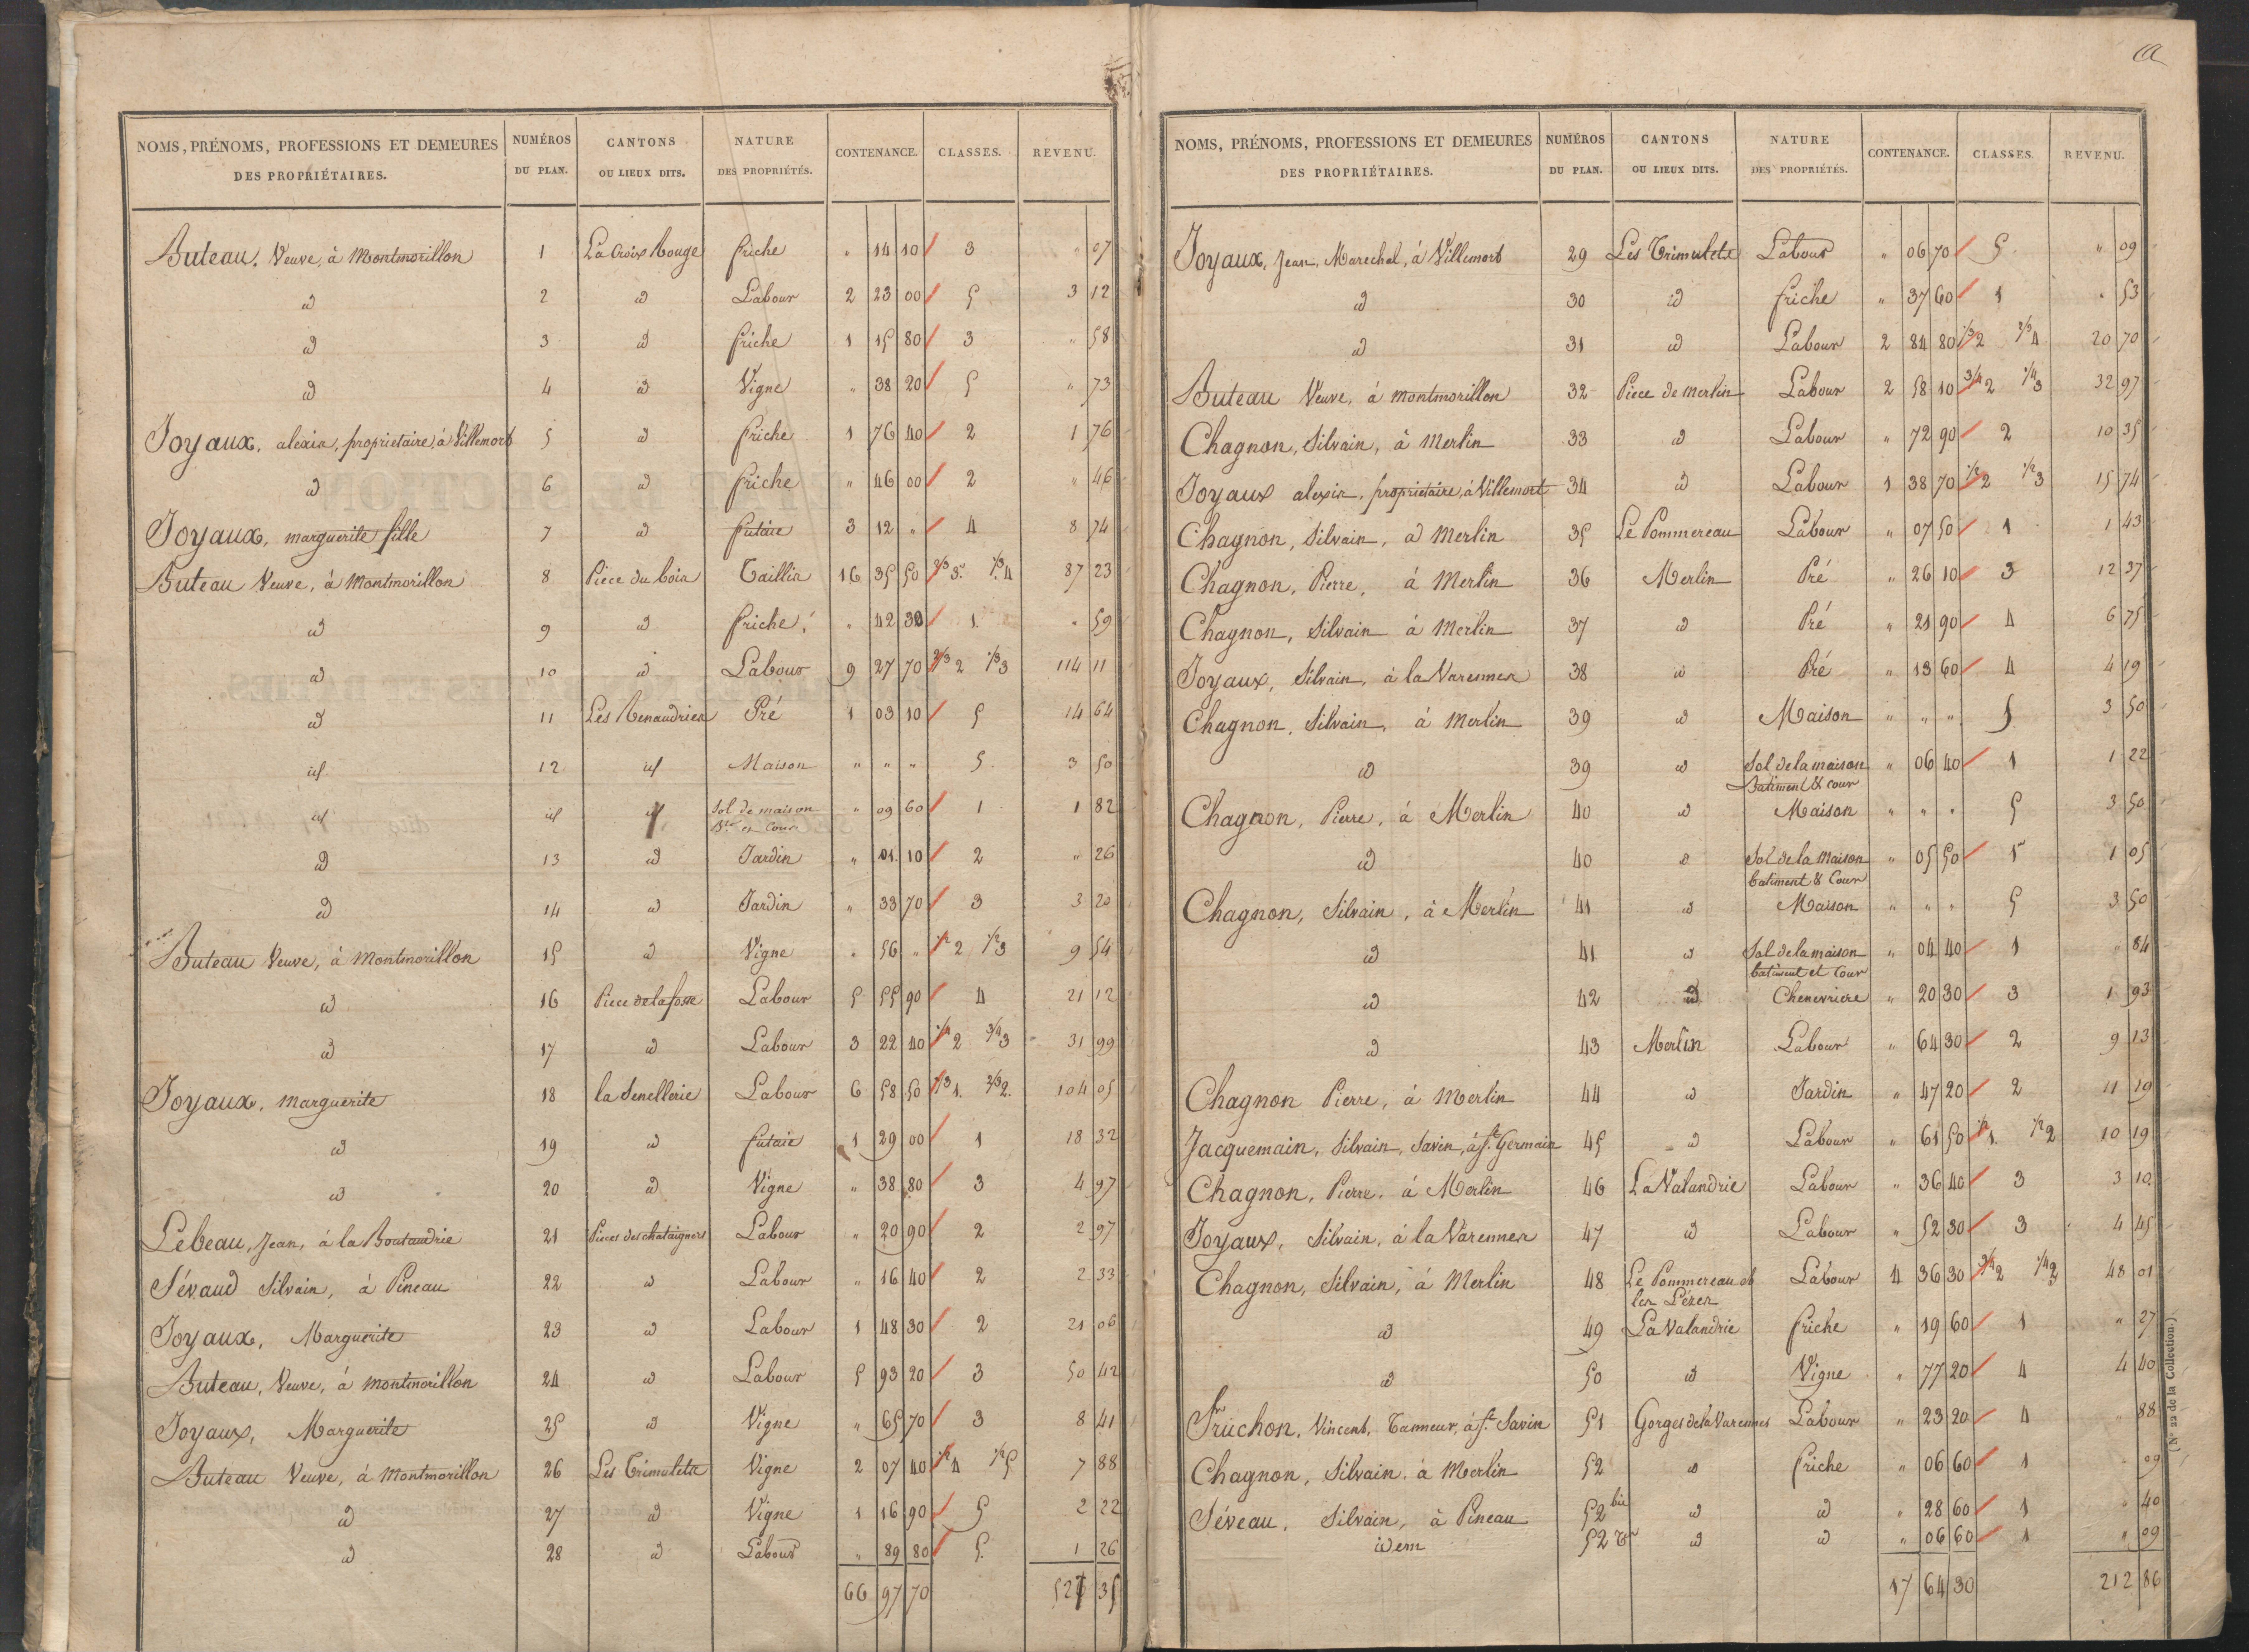 NOMS, PRÉNOMS, PROFESSIONS ET DEMEURES DES PROPRIÉTAIRES. NUMÉROS DU PLAN. CANTONS OU LIEUX DITS. NATURE DES PROPRIÉTÉS. CONTENANCE. CLASSES. REVENU.
Buteau, Veuve, à Montmorillon 1 La Croix Rouge friche " 14 10 3 " 07
id 2 id Labour 2 23 00 5 3 12
id 3 id friche 1 15 80 3 " 58
id 4 id Vigne " 38 20 5 " 73
Joyaux, alexis, proprietaire, à Villemort 5 id friche 1 76 40 2 1 76
id 6 id friche " 46 00 2 " 46
Joyaux, marguerite fille 7 id futaie 3 12 " 4 8 74
Buteau Veuve, à Montmorillon 8 Piece du bois Taillis 16 35 50 2/3 3. 1/3 4 87 23
id 9 id friche " 42 30 1. " 59
id 10 id Labour 9 27 70 2/3 2 1/3 3 114 11
id 11 Les Renaudries Pré 1 03 10 5 14 64
id. 12 id Maison " " " 5. 3 50
id id Sol de maison " 09 60 1 1 82
Bt. et Cour
id 13 id Jardin " 01 10 2 " 26
id 14 id Jardin " 33 70 3 3 20
Buteau Veuve, à Montmorillon 15 id Vigne " 56 " 1/2 2 1/2 3 9 54
id 16 Piece de la fosse Labour 5 55 90 4 21 12
id 17 id Labour 3 22 40 1/4 2 3/4 3 31 99
Joyaux, marguerite 18 la Senellerie Labour 6 58 50 1/3 1. 2/3 2. 104 05
id 19 id futaie 1 29 00 1 18 32
id 20 id Vigne " 38 80 3 4 97
Lebeau, Jean, à la Boutaudrie 21 Pieces des chataigners Labour " 20 90 2 2 97
Sévaud Silvain, à Pineau 22 id Labour " 16 40 2 2 33
Joyaux, Marguerite 23 id Labour 1 48 30 2 21 06
Buteau, Veuve, à montmorillon 24 id Labour 5 93 20 3 50 42
Joyaux, Marguerite 25 id Vigne " 65 70 3 8 41
Buteau Veuve, à Montmorillon 26 Les Trimuletes Vigne 2 07 40 1/2 4 1/2 5 7 88
id 27 id Vigne 1 16 90 5 2 22
id 28 id Labour " 89 80 5. 1 26
66 97 70 35
NOMS, PRÉNOMS, PROFESSIONS ET DEMEURES DES PROPRIÉTAIRES. NUMÉROS DU PLAN. CANTONS OU LIEUX DITS. NATURE DES PROPRIÉTÉS. CONTENANCE. CLASSES. REVENU.
Joyaux, Jean, Marechal, à Villemort 29 Les Trimulets Labour " 06 70 5 " 09
id 30 id friche " 37 60 1 " 53
id 31 id Labour 2 84 80 1/3 2 2/3 4 20 70
Buteau Veuve, à montmorillon 32 Piece de Merlin Labour 2 58 10 3/4 2 1/4 3 32 97
Chagnon, Silvain, à Merlin 33 id Labour " 72 90 2 10 35
Joyaux alexis, proprietaire, à Villemort 34 id Labour 1 38 70 1/2 2 1/2 3 15 74
Chagnon, Silvain, à Merlin 35 Le Pommereau Labour " 07 50 1 1 43
Chagnon, Pierre, à Merlin 36 Merlin Pré " 26 10 3 12 37
Chagnon, Silvain à Merlin 37 id Pré " 21 90 4 6 75
Joyaux, Silvain, à la Varennes 38 id Pré " 13 60 4 4 19
Chagnon, Silvain, à Merlin 39 id Maison " " " 5 3 50
id 39 id Sol de la maison " 06 40 1 1 22
Batiment & cour
Chagnon, Pierre, à Merlin 40 id Maison " " " 5 3 50
id 40 id Sol de la Maison " 05 50 1 1 05
batiment & Cour
Chagnon, Silvain, à Merlin 41 id Maison " " " 5 3 50
id 41 id Sol de la maison " 04 40 1 " 84
batiment et Cour
id 42 id Chenevriere " 20 30 3 1 93
id 43 Merlin Labour " 64 30 2 9 13
Chagnon Pierre, à Merlin 44 id Jardin " 47 20 2 11 19
Jacquemain, Silvain, Savin, à St. Germain 45 id Labour " 61 50 1/2 1. 1/2 2 10 19
Chagnon, Pierre, à Merlin 46 La Valandrie Labour " 36 40 3 3 10
Joyaux, Silvain, à la Varennes 47 id Labour " 52 30 3 4 45
Chagnon, Silvain, à Merlin 48 Le Pommereau et Labour 4 36 30 48 01
les
id 49 La Valandrie friche " 19 60 1 " 27
id 50 id Vigne " 77 20 4 4 40
Truchon, Vincent, Tanneur, à St. Savin 51 Gorges de la Varennes Labour " 23 20 4 " 88
Chagnon, Silvain, à Merlin 52 id friche " 06 60 1 " 09
Séveau, Silvain, à Pineau 52 bis id id " 28 60 1 " 40
idem 52 ter id id " 06 60 1 " 09
17 64 30 212 86
(N° 22 de la Collection.)